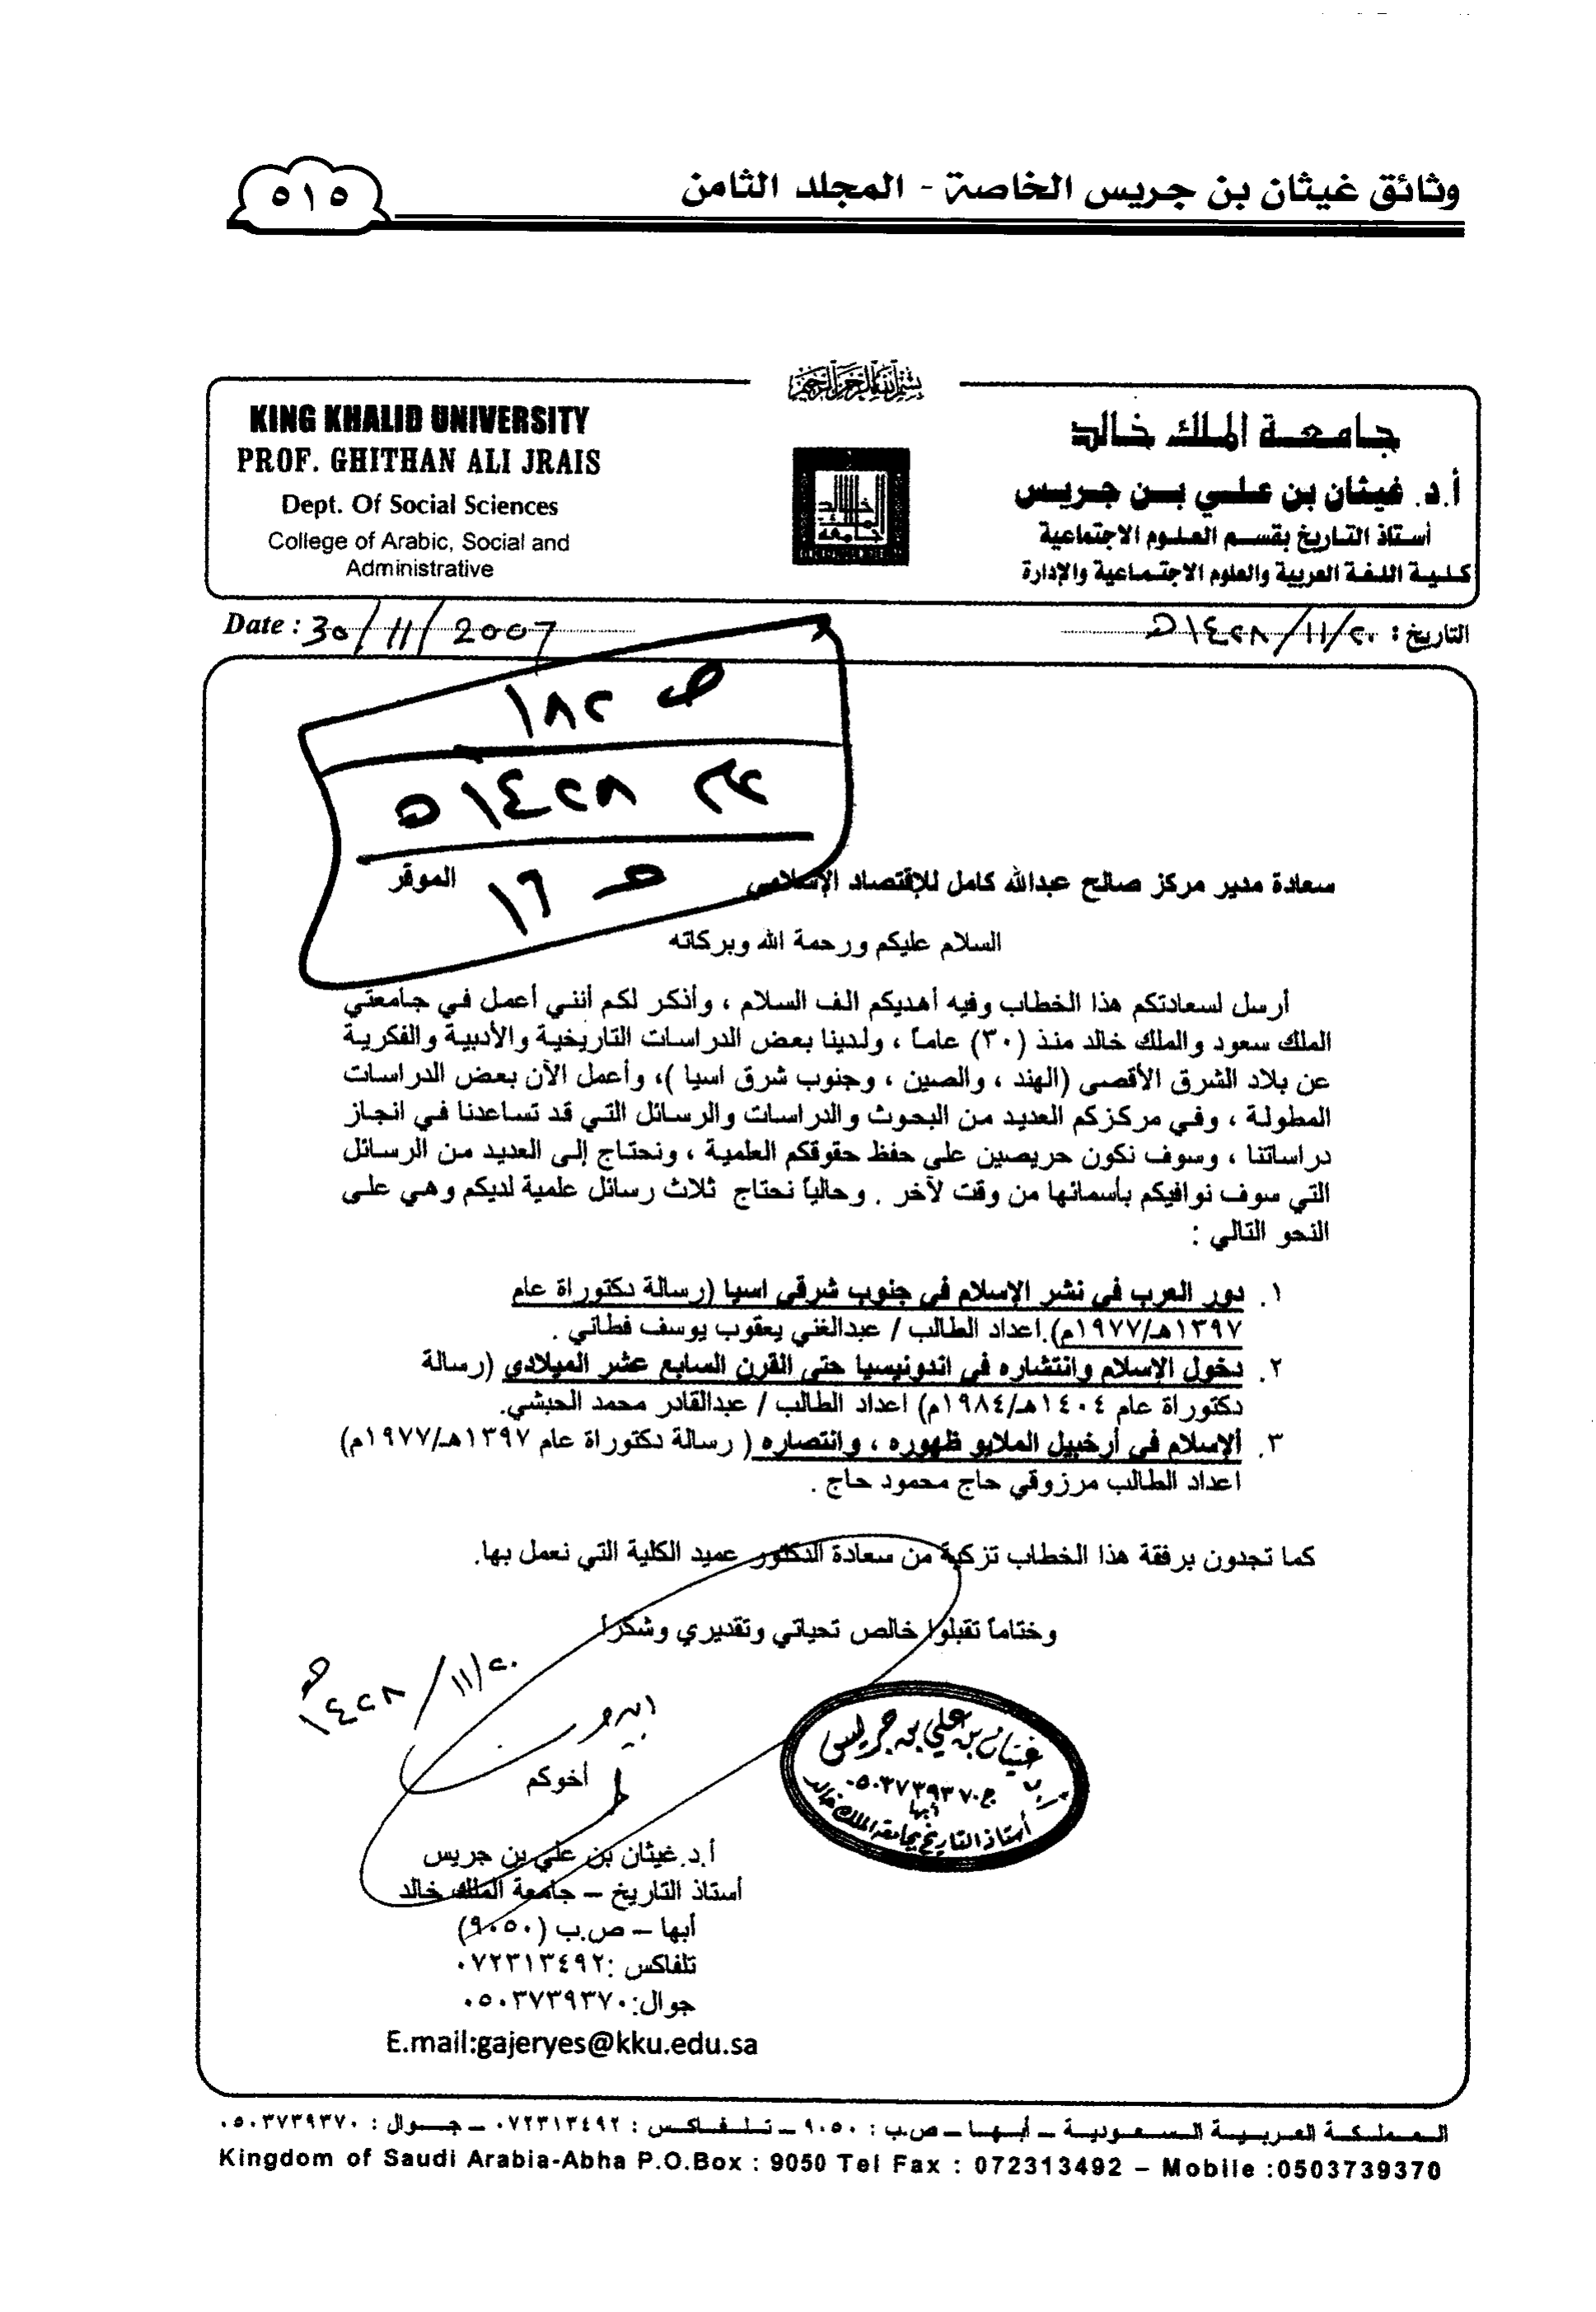 وثائق غيثان بن جريس الخاصة - المجلد الثامن
٥١٥
بسم الله الرحمن الرحيم
KING KHALID UNIVERSITY
PROF. GHITHAN ALI JRAIS
Dept. Of Social Sciences
College of Arabic, Social and
Administrative
جامعة الملك خالد
أ.د. غيثان بن علي بن جريس
أستاذ التاريخ بقسم العلوم الاجتماعية
كلية اللغة العربية والعلوم الاجتماعية والإدارة
Date : 30/11/2007
التاريخ : ٢٠/١١/١٤٢٨هـ
ص ١٨٢
١٤٢٨هـ
١٦
سعادة مدير مركز صالح عبدالله كامل للإقتصاد الإسلامي الموقر
السلام عليكم ورحمة الله وبركاته
أرسل لسعادتكم هذا الخطاب وفيه أهديكم الف السلام ، وأذكر لكم أنني أعمل في جامعتي
الملك سعود والملك خالد منذ (٣٠) عاماً ، ولدينا بعض الدراسات التاريخية والأدبية والفكرية
عن بلاد الشرق الأقصى (الهند ، والصين ، وجنوب شرق اسيا )، وأعمل الآن بعض الدراسات
المطولة ، وفي مركزكم العديد من البحوث والدراسات والرسائل التي قد تساعدنا في انجاز
دراساتنا ، وسوف نكون حريصين على حفظ حقوقكم العلمية ، ونحتاج إلى العديد من الرسائل
التي سوف نوافيكم بأسمائها من وقت لآخر . وحالياً نحتاج ثلاث رسائل علمية لديكم وهي على
النحو التالي :
١. دور العرب في نشر الإسلام في جنوب شرقي اسيا (رسالة دكتوراة عام
١٣٩٧هـ/١٩٧٧م).اعداد الطالب / عبدالغني يعقوب يوسف فطاني .
٢. دخول الإسلام وانتشاره في اندونيسيا حتى القرن السابع عشر الميلادي (رسالة
دكتوراة عام ١٤٠٤هـ/١٩٨٤م) اعداد الطالب / عبدالقادر محمد الحبشي.
٣. ألإسلام في أرخبيل الملايو ظهوره ، وانتصاره ( رسالة دكتوراة عام ١٣٩٧هـ/١٩٧٧م)
اعداد الطالب مرزوقي حاج محمود حاج .
كما تجدون برفقة هذا الخطاب تزكية من سعادة الدكتور عميد الكلية التي نعمل بها.
وختاماً تقبلوا خالص تحياتي وتقديري وشكراً
٢٠/١١/١٤٢٨هـ
أخوكم
غيثان بن علي بن جريس
ج ٠٥٠٣٧٣٩٣٧٠
أبها
أستاذ التاريخ بجامعة الملك خالد
أ.د.غيثان بن علي بن جريس
أستاذ التاريخ – جامعة الملك خالد
أبها – ص.ب (٩٠٥٠)
تلفاكس :٠٧٢٣١٣٤٩٢
جوال:٠٥٠٣٧٣٩٣٧٠
E.mail:gajeryes@kku.edu.sa
المملكة العربية السعودية – أبها – ص.ب : ٩٠٥٠ – تلفاكس : ٠٧٢٣١٣٤٩٢ – جوال : ٠٥٠٣٧٣٩٣٧٠
Kingdom of Saudi Arabia-Abha P.O.Box : 9050 Tel Fax : 072313492 – Mobile :0503739370